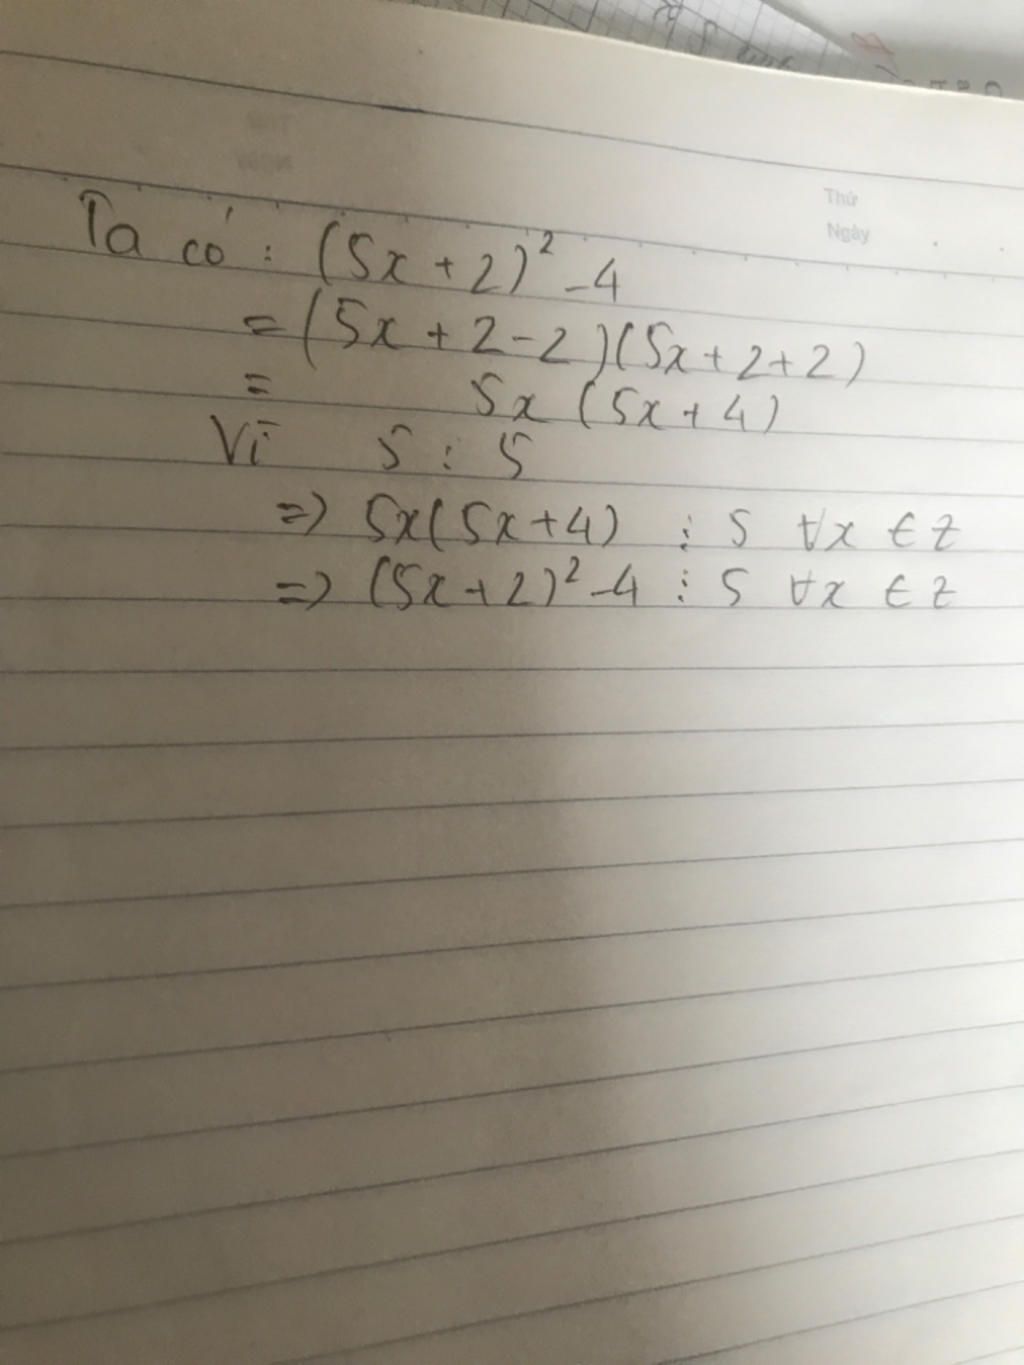 Thứ
Ngày
Ta có : (5x + 2)² - 4
= (5x + 2 - 2)(5x + 2 + 2)
= 5x (5x + 4)
Vì 5 ⋮ 5
=> 5x(5x + 4) ⋮ 5 ∀x ∈ Z
=> (5x + 2)² - 4 ⋮ 5 ∀x ∈ Z